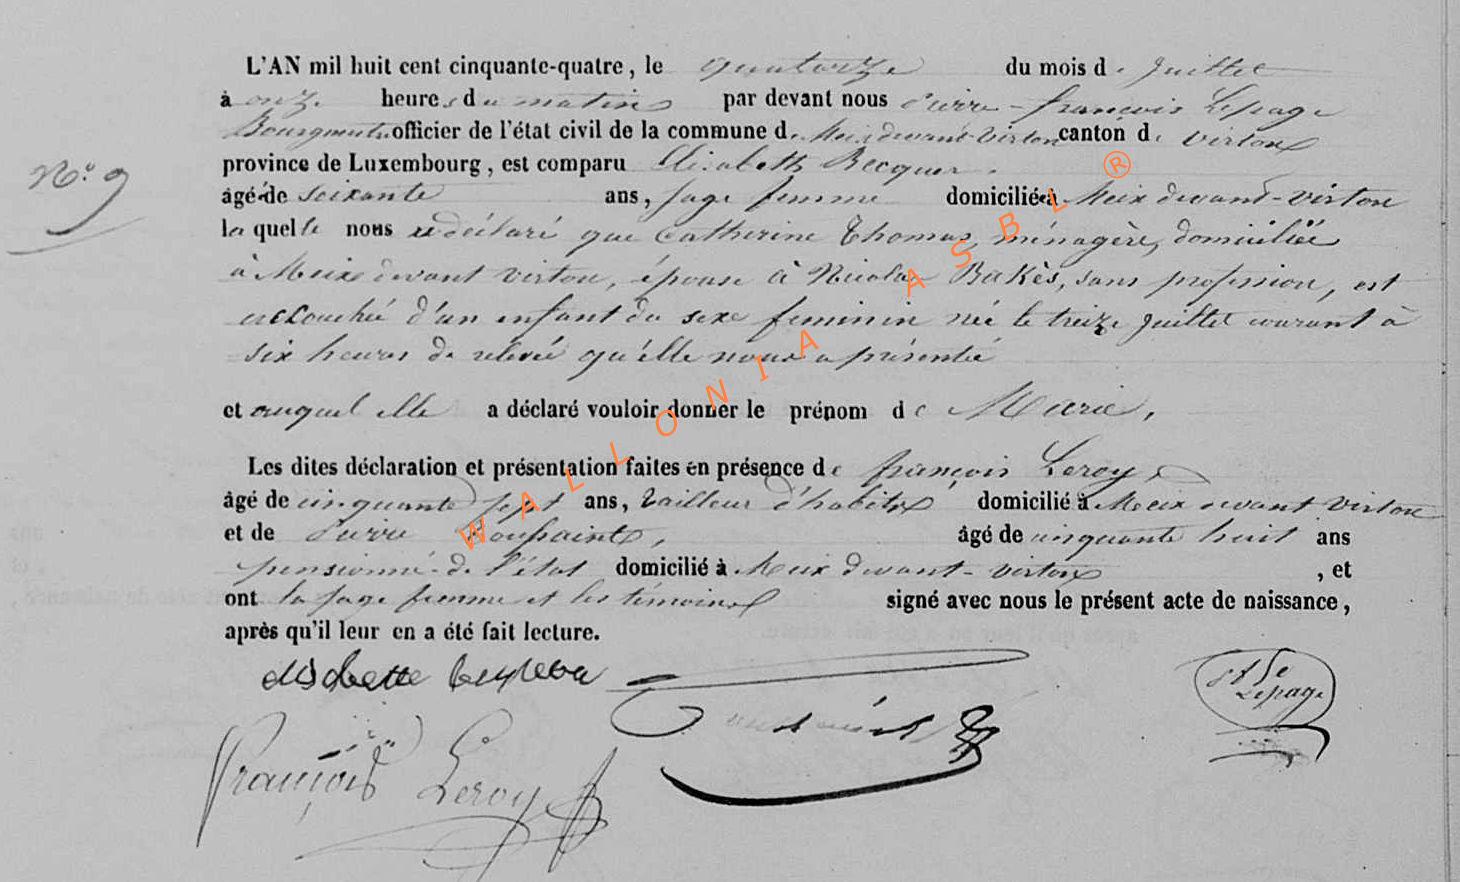 L'AN mil huit cent cinquante-quatre, le quatorze du mois de juillet
à onze heures du matin par devant nous Pierre-françois Lepage
Bourgmestre officier de l'état civil de la commune de Meix devant-virton canton de virton
province de Luxembourg, est comparu Elisabeth Becquer
N° 9
âgée de soixante ans, sage femme domiciliée à Meix devant-virton
laquelle nous a déclaré que Catherine Thomas, ménagère, domiciliée
à Meix devant virton, épouse à Nicolas Bakès, sans profession, est
accouchée d'un enfant du sexe feminin née le treize juillet courant à
six heures de relevée qu'elle nous a présenté
et auquel elle a déclaré vouloir donner le prénom de Marie,
Les dites déclaration et présentation faites en présence de françois Leroy
âgé de cinquante sept ans, tailleur d'habits domicilié à Meix devant virton
et de Pierre Toussainte, âgé de cinquante huit ans
pensionné de l'état domicilié à Meix devant-virton, et
ont la sage femme et les témoins signé avec nous le présent acte de naissance,
après qu'il leur en a été fait lecture.
françois Leroy
Lepage
WALLONIA ASBL ®